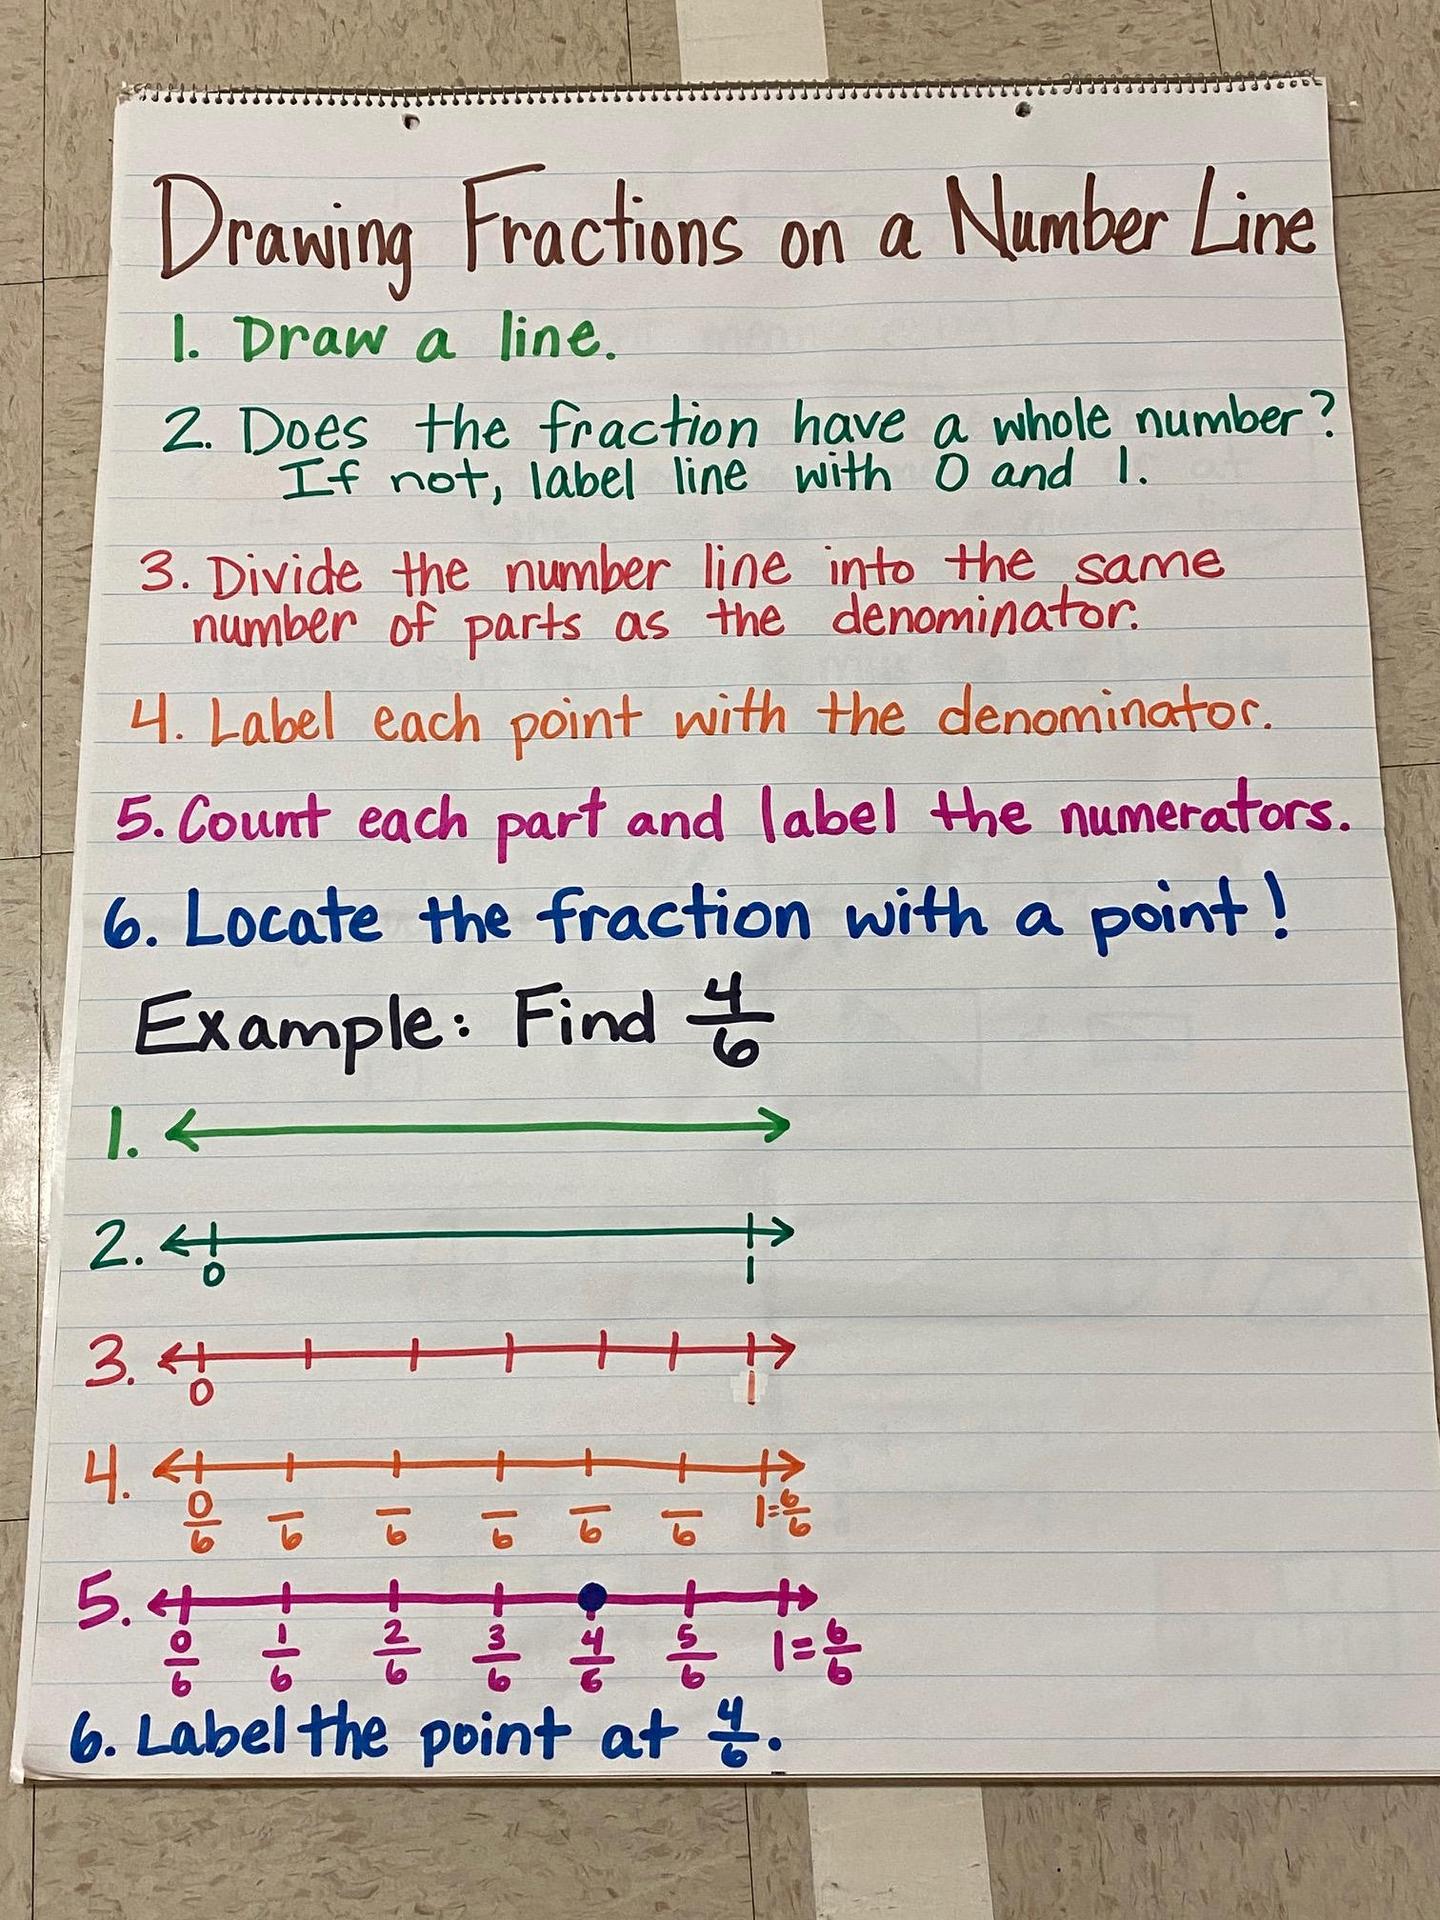 Drawing Fractions on a Number Line
1. Draw a line.
2. Does the fraction have a whole number?
If not, label line with 0 and 1.
3. Divide the number line into the same
number of parts as the denominator.
4. Label each point with the denominator.
5. Count each part and label the numerators.
6. Locate the fraction with a point!
Example: Find 4/6
1.
2.
0 1
3.
0 1
4.
0/6 /6 /6 /6 /6 /6 1=6/6
5.
0/6 1/6 2/6 3/6 4/6 5/6 1=6/6
6. Label the point at 4/6.